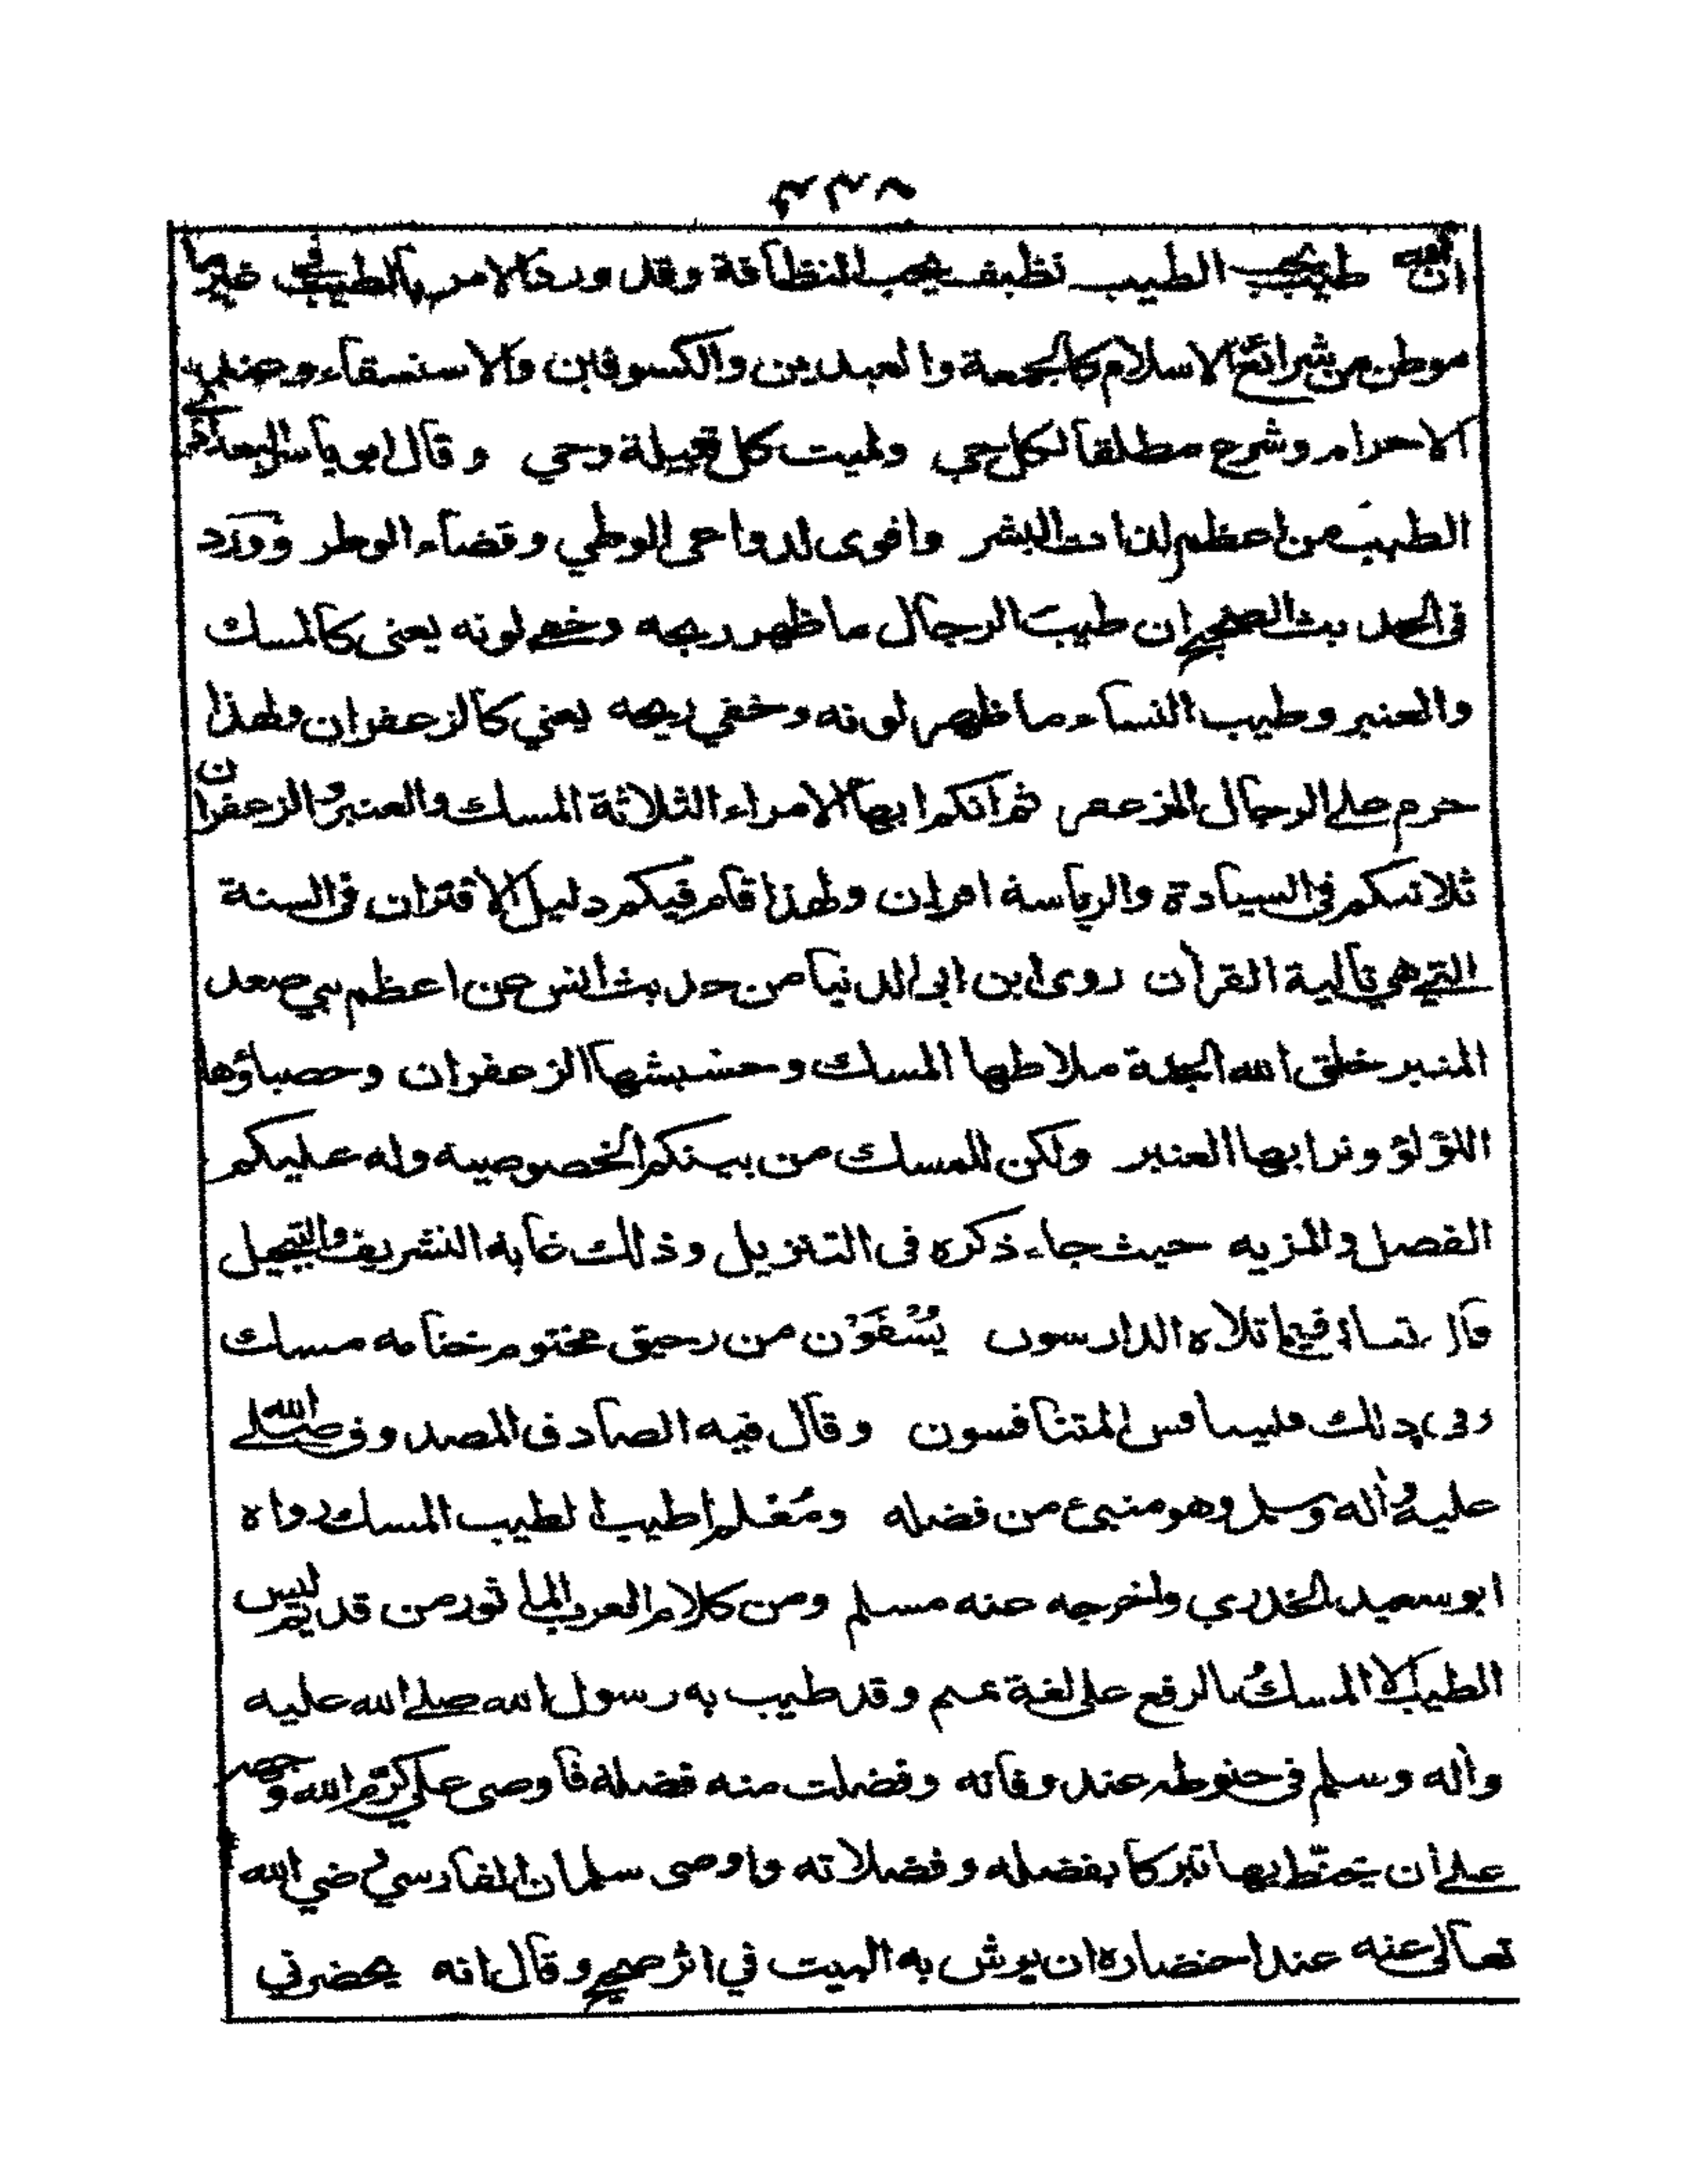 ٣٣٨
ان الله طيب يحب الطيب نظيف يحب النظافة وقد ورد الامر بالطيب في غير ما
موطن من شرائع الاسلام كالجمعة والعيدين والكسوفين والاستسقاء وعند
الاحرام وشرع مطلقا لكل حي ولميت كل قبيلة وحي وقال ابو ياسر البغدادي
الطيب من اعظم لذات البشر واقوى لدواعي الوطي وقضاء الوطر وورد
في الحديث الصحيح ان طيب الرجال ما ظهر ريحه وخفي لونه يعني كالمسك
والعنبر وطيب النساء ما ظهر لونه وخفي ريحه يعني كالزعفران ولهذا
حرم على الرجال المزعفر ثم انكم ايها الامراء الثلاثة المسك والعنبر والزعفران
ثلاثتكم في السيادة والرياسة اقران ولهذا قام فيكم دليل الاقتران في السنة
التي هي تالية القرأن روى ابن ابي الدنيا من حديث انس عن اعظم نبي صعد
المنبر خلق الله الجنة ملاطها المسك وحشيشها الزعفران وحصباؤها
اللؤلؤ وترابها العنبر ولكن للمسك من بينكم الخصوصيه وله عليكم
الفضل والمزيه حيث جاء ذكره في التنزيل وذلك غاية التشريف والتبجيل
قال تعالى فيما تلاه الدارسون يُسْقَوْن من رحيق مختوم ختامه مسك
وفي ذلك فليتنافس المتنافسون وقال فيه الصادق المصدوق صلى الله
عليه وأله وسلم وهو منبئ من فضله ومُعْلم اطيب الطيب المسك رواه
ابو سعيد الخدري واخرجه عنه مسلم ومن كلام العرب المأثور من قديم ليس
الطيب الا المسكُ بالرفع على لغة تميم وقد طيب به رسول الله صلى الله عليه
وأله وسلم في حنوطه عند وفاته وفضلت منه فضلة فاوصى علي كرّم الله وجهه
على ان يحنّط بها تبركا بفضله وفضلاته واوصى سلمان الفارسي رضي الله
تعالى عنه عند احتضاره ان يرش به البيت في اثر صحيح وقال انه يحضرني